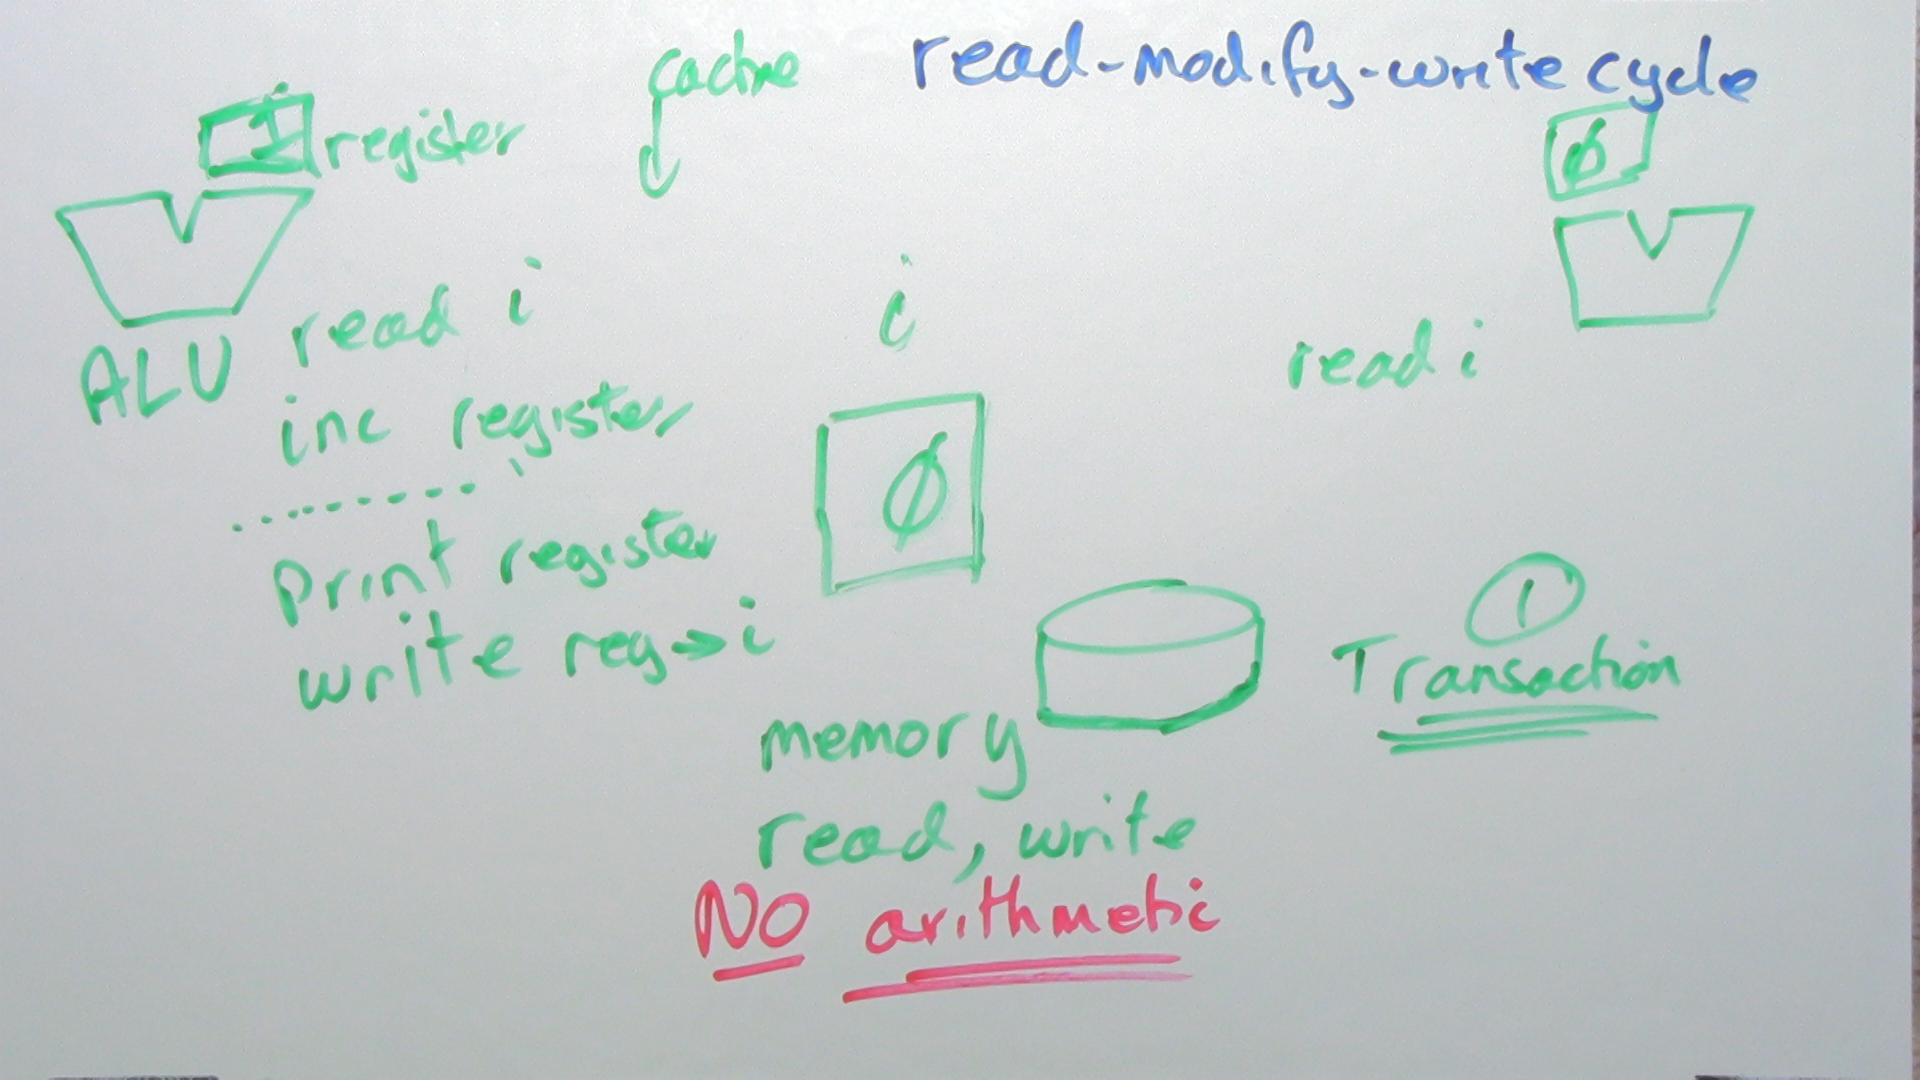 cache
read-modify-write cycle
1 register
ø
ALU
read i
inc register
.........
print register
write reg → i
i
ø
read i
1
Transaction
memory
read, write
NO arithmetic